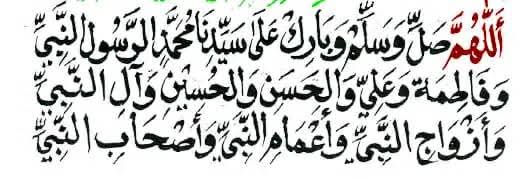 أَللّٰهُمَّ صَلِّ وَسَلِّمْ وَبَارِكْ عَلَى سَيِّدِنَا مُحَمَّدٍ الرَّسُولِ النَّبِيِّ
وَفَاطِمَةَ وَعَلِيٍّ وَالْحَسَنِ وَالْحُسَيْنِ وَآلِ النَّبِيِّ
وَأَزْوَاجِ النَّبِيِّ وَأَعْمَامِ النَّبِيِّ وَأَصْحَابِ النَّبِيِّ